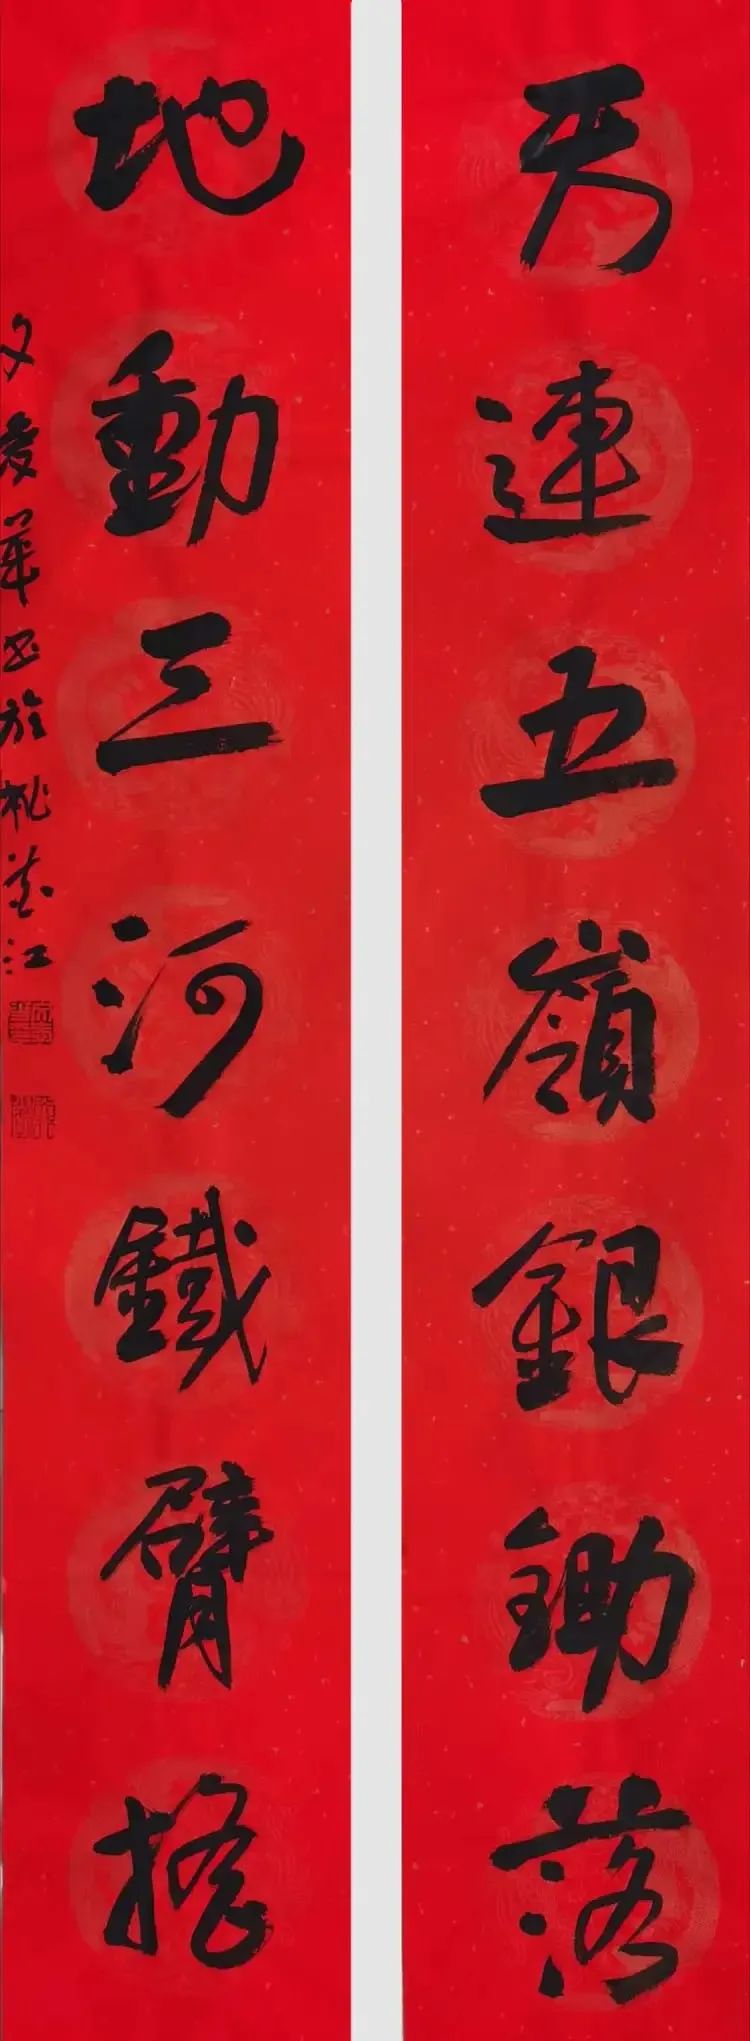 天連五嶺銀鋤落
地動三河鐵臂搖
文華书於桃花江